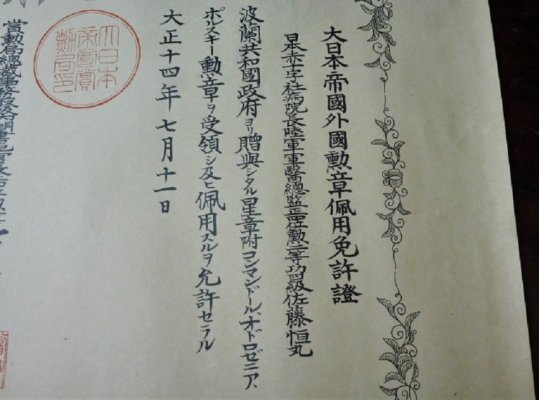 大日本帝國外國勲章佩用免許證
日本赤十字社病院長陸軍軍醫總監正位勲二等功級佐藤恒丸
波蘭共和國政府ヨリ贈與シタル星章附コンマンドール、オドロゼニア、
ポルスキー勲章ヲ受領シ及ヒ佩用スルヲ允許セラル
大正十四年七月十一日
大日本
帝國賞
勲局印
賞勲局總裁